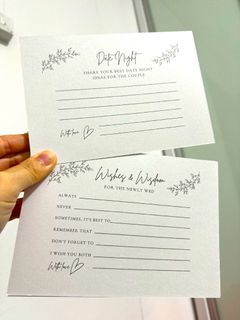 Date Night
SHARE YOUR BEST DATE NIGHT
IDEAS FOR THE COUPLE
With love
Wishes & Wisdom
FOR THE NEWLY WED
ALWAYS
NEVER
SOMETIMES, IT'S BEST TO
REMEMBER THAT
DON'T FORGET TO
I WISH YOU BOTH
With love